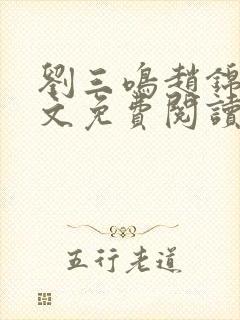 劉三鳴趙錦
文免費閱讀
五行老道